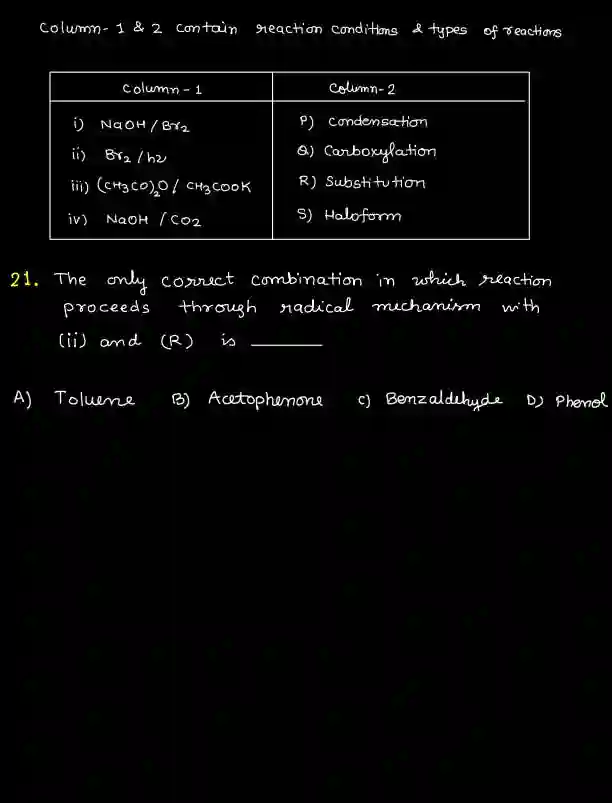 Column- 1 & 2 contain reaction conditions & types of reactions
Column - 1 Column-2
i) NaOH / Br2 P) Condensation
ii) Br2 / hν Q) Carboxylation
iii) (CH3CO)2O / CH3COOK R) Substitution
iv) NaOH / CO2 S) Haloform
21. The only correct combination in which reaction
proceeds through radical mechanism with
(ii) and (R) is ______
A) Toluene B) Acetophenone C) Benzaldehyde D) Phenol